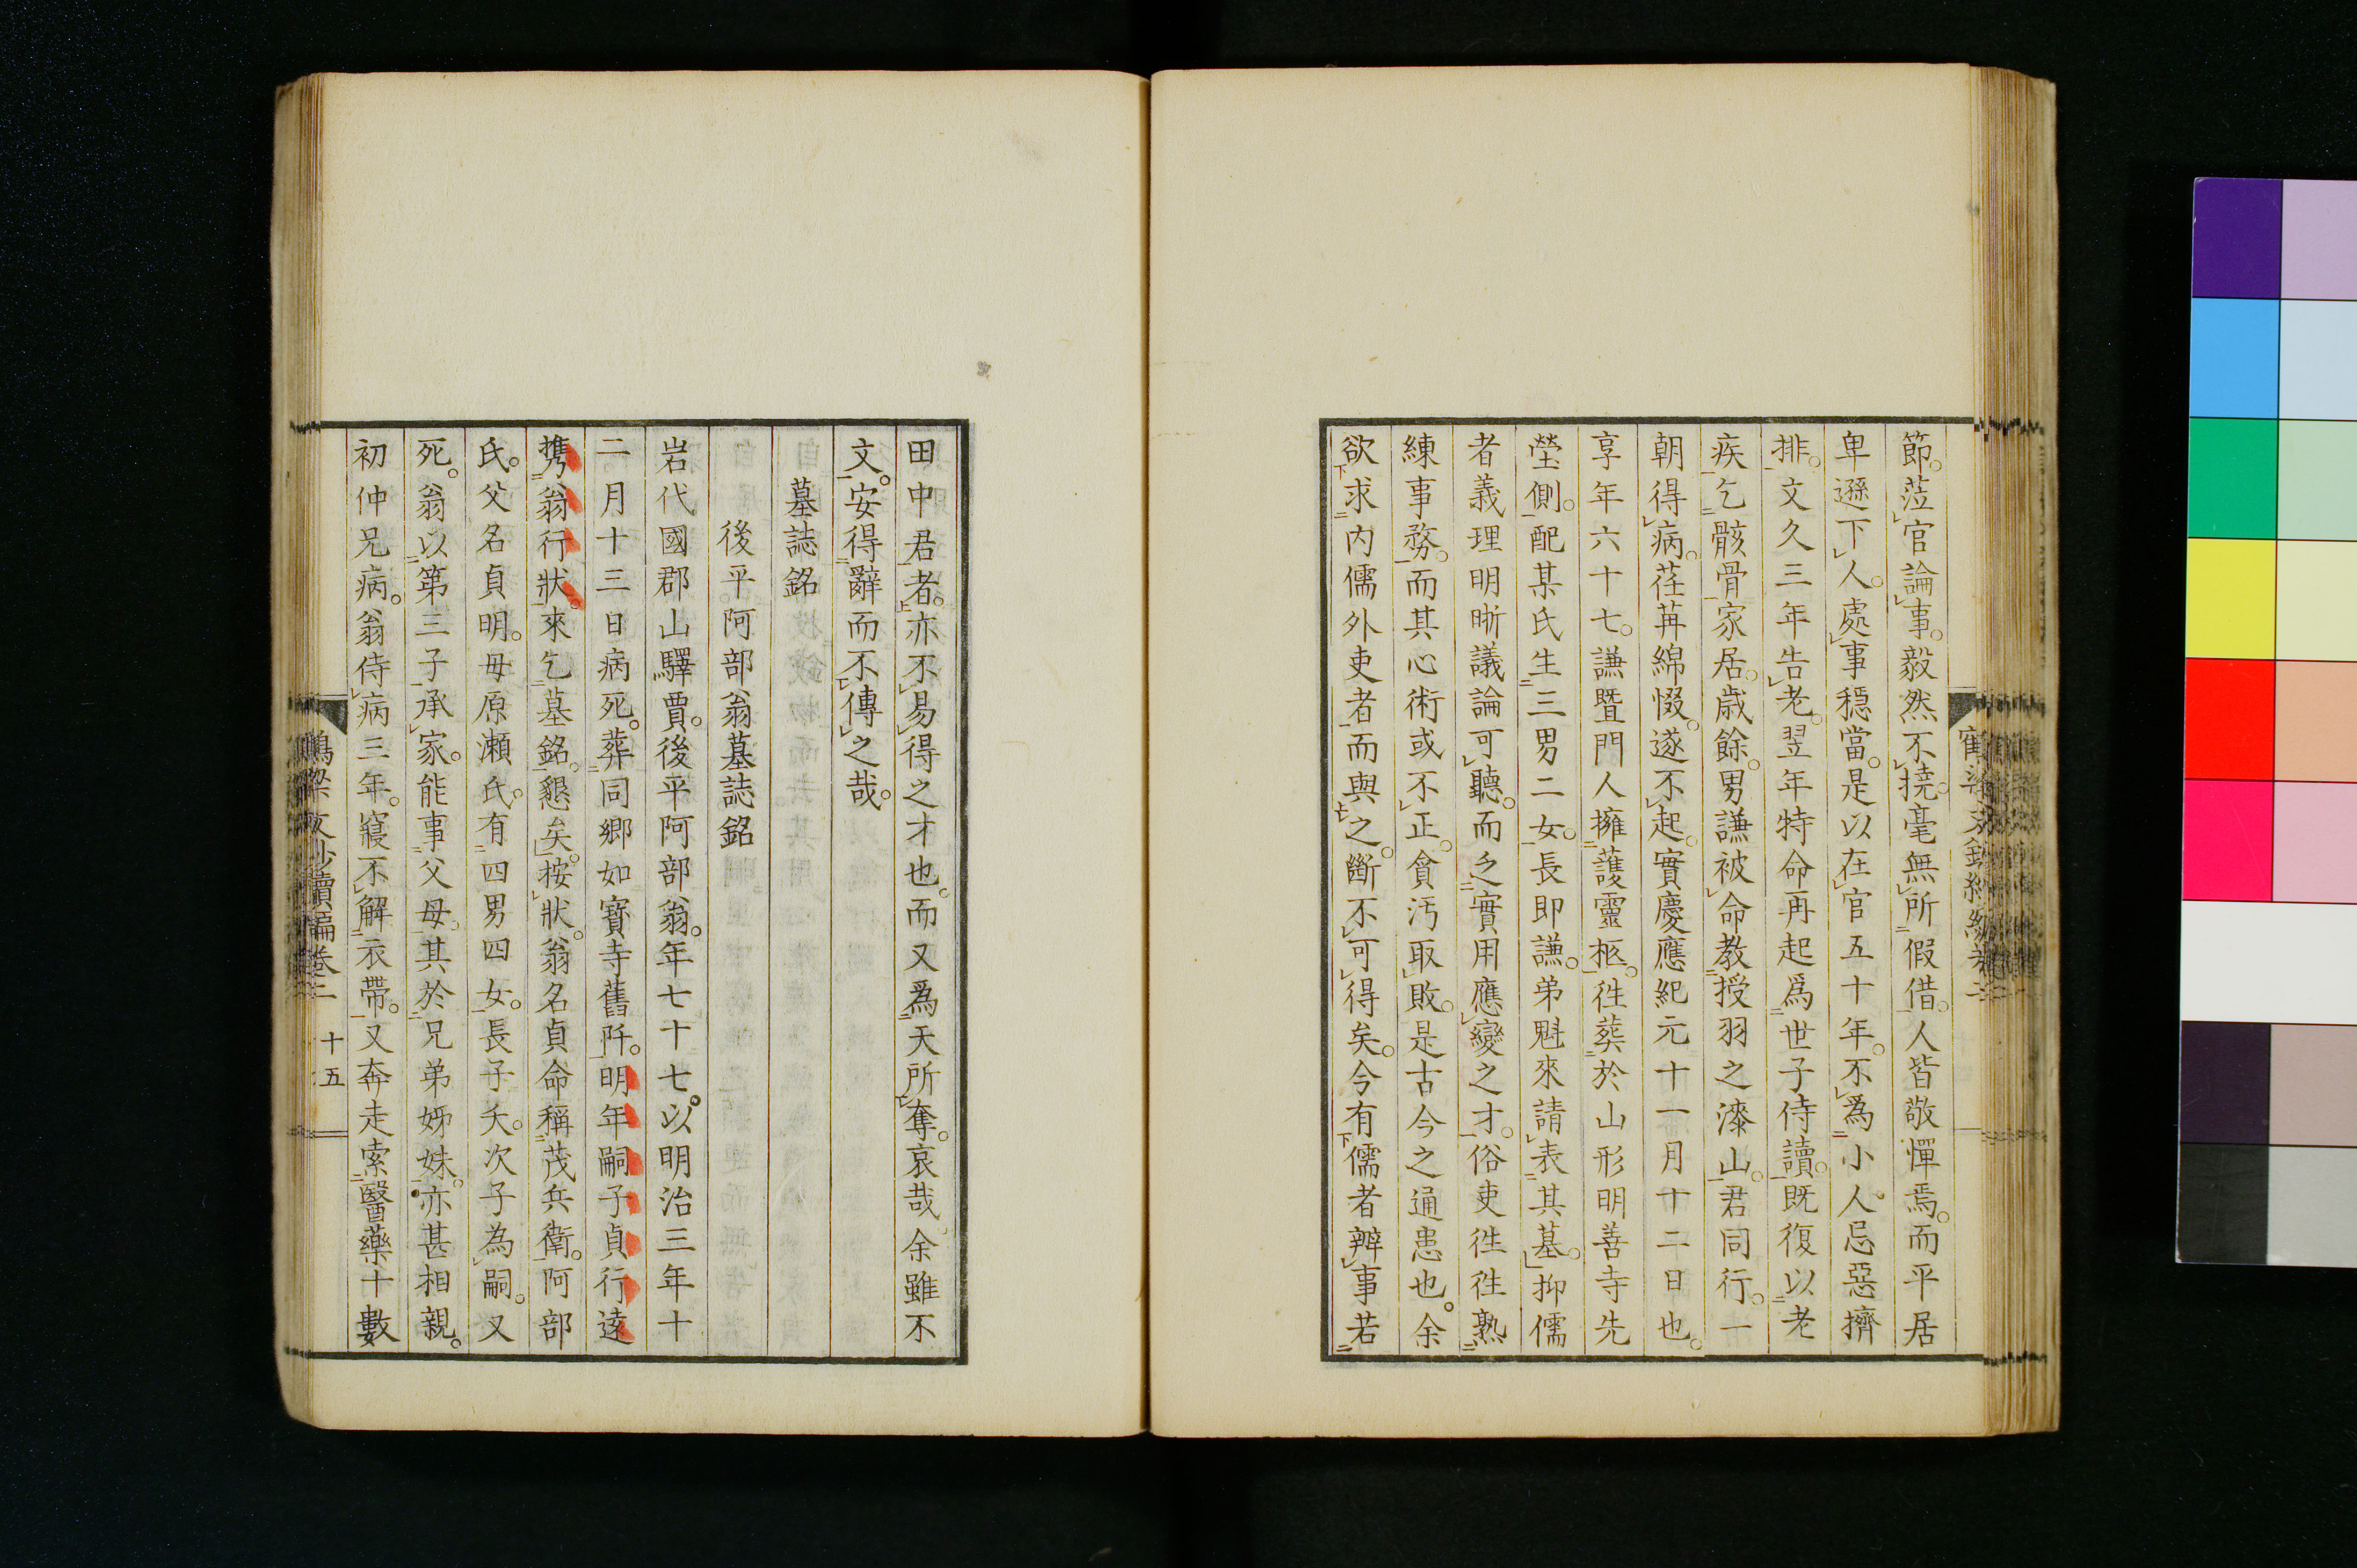 節。莅官論事。毅然不撓。毫無所假借。人皆敬憚焉。而平居
卑遜下人。處事穩當。是以在官五十年。不爲小人忌惡擠
排。文久三年告老。翌年特命再起爲世子侍讀。既復以老
疾乞骸骨家居。歲餘。男謙被命教授羽之漆山。君同行。一
朝得病。荏苒綿惙。遂不起。實慶應紀元十一月十二日也。
享年六十七。謙暨門人擁護靈柩。徃葬於山形明善寺先
塋側。配某氏生三男二女。長即謙。弟魁來請表其墓。抑儒
者義理明晰議論可聽。而乏實用應變之才。俗吏徃徃熟
練事務。而其心術或不正。貪汚取敗。是古今之通患也。余
欲求内儒外吏者而與之。斷不可得矣。今有儒者辨事若
田中君者。亦不易得之才也。而又爲天所奪。哀哉。余雖不
文。安得辭而不傳之哉。
墓誌銘
後平阿部翁墓誌銘
岩代國郡山驛賈。後平阿部翁。年七十七。以明治三年十
二月十三日病死。葬同郷如寶寺舊阡。明年嗣子貞行遠
携翁行狀來乞墓銘。懇矣。按狀。翁名貞命稱茂兵衛。阿部
氏。父名貞明。毋原瀬氏。有四男四女。長子夭。次子為嗣。又
死。翁以第三子承家。能事父母。其於兄弟姊妹。亦甚相親。
初仲兄病。翁侍病三年。寢不解衣帶。又奔走索醫藥十數
鶴梁文鈔續編卷二 十五